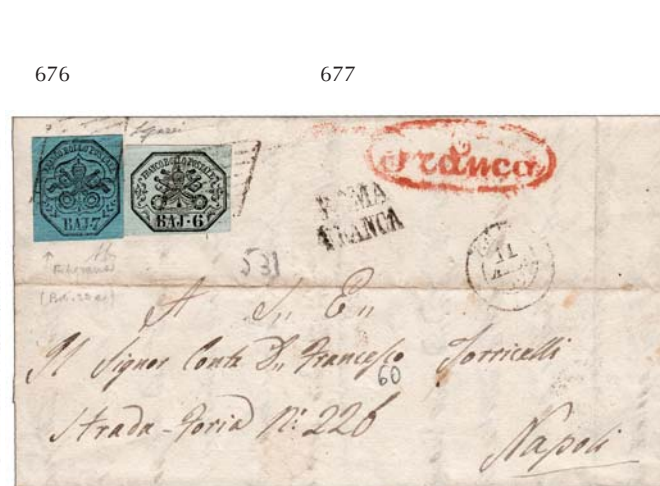 676 677
FRANCO BOLLO POSTALE
BAJ-7
FRANCO BOLLO POSTALE
BAJ-6
Franca
ROMA
FRANCA
11
531
A S,, E,,
Il Signor Conte D,, Francesco Torricelli
60
Strada-Foria N: 226
Napoli